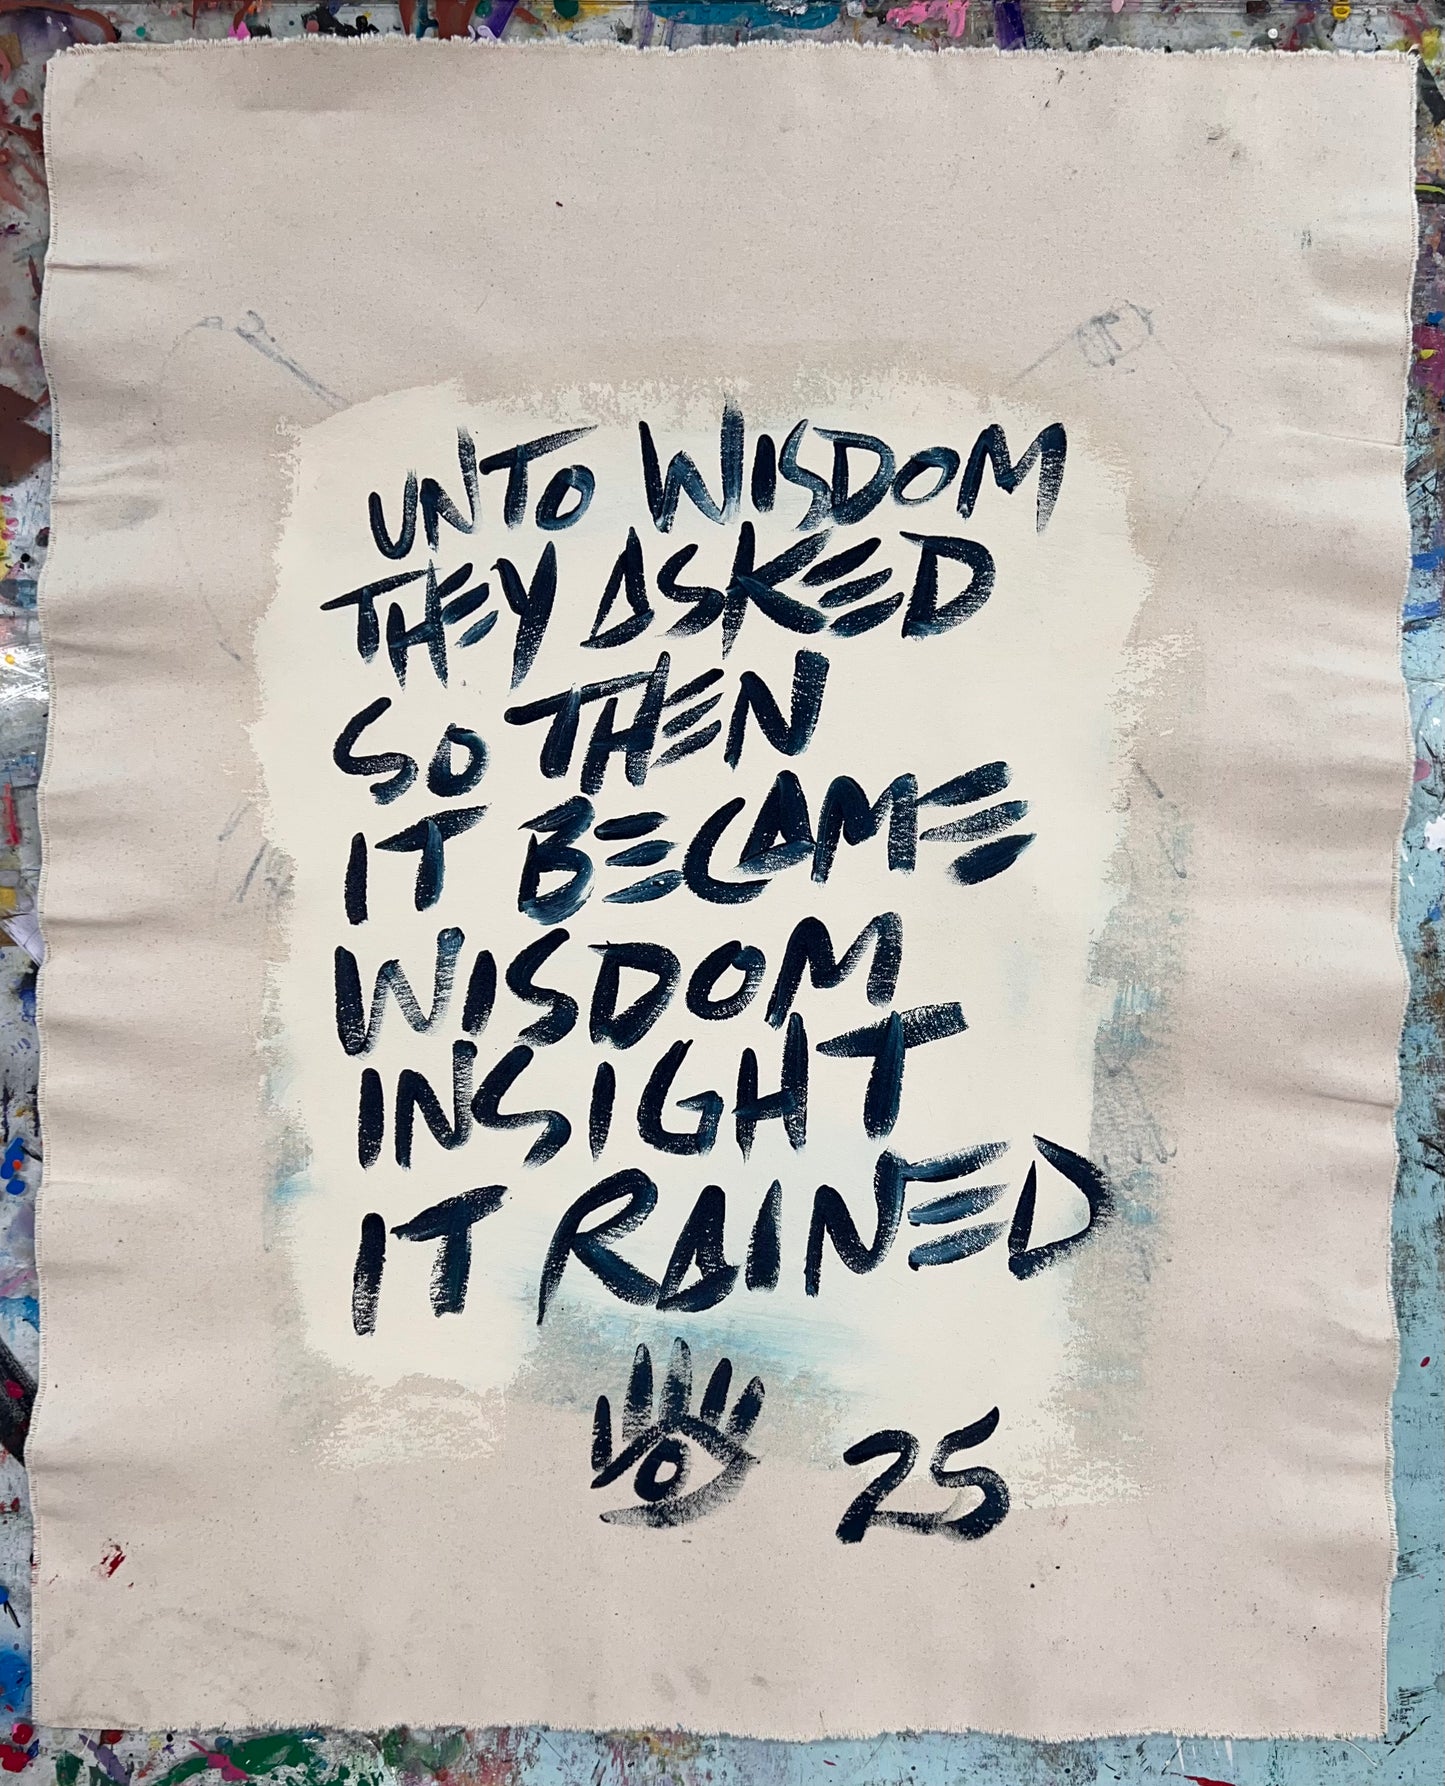 UNTO WISDOM
THEY ASKED
SO THEN
IT BECAME
WISDOM
INSIGHT
IT RAINED
25